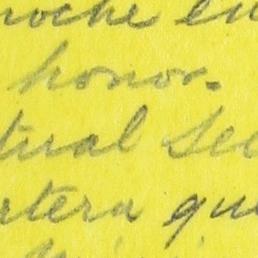 noche en
honor.
tural Sec
rtera que